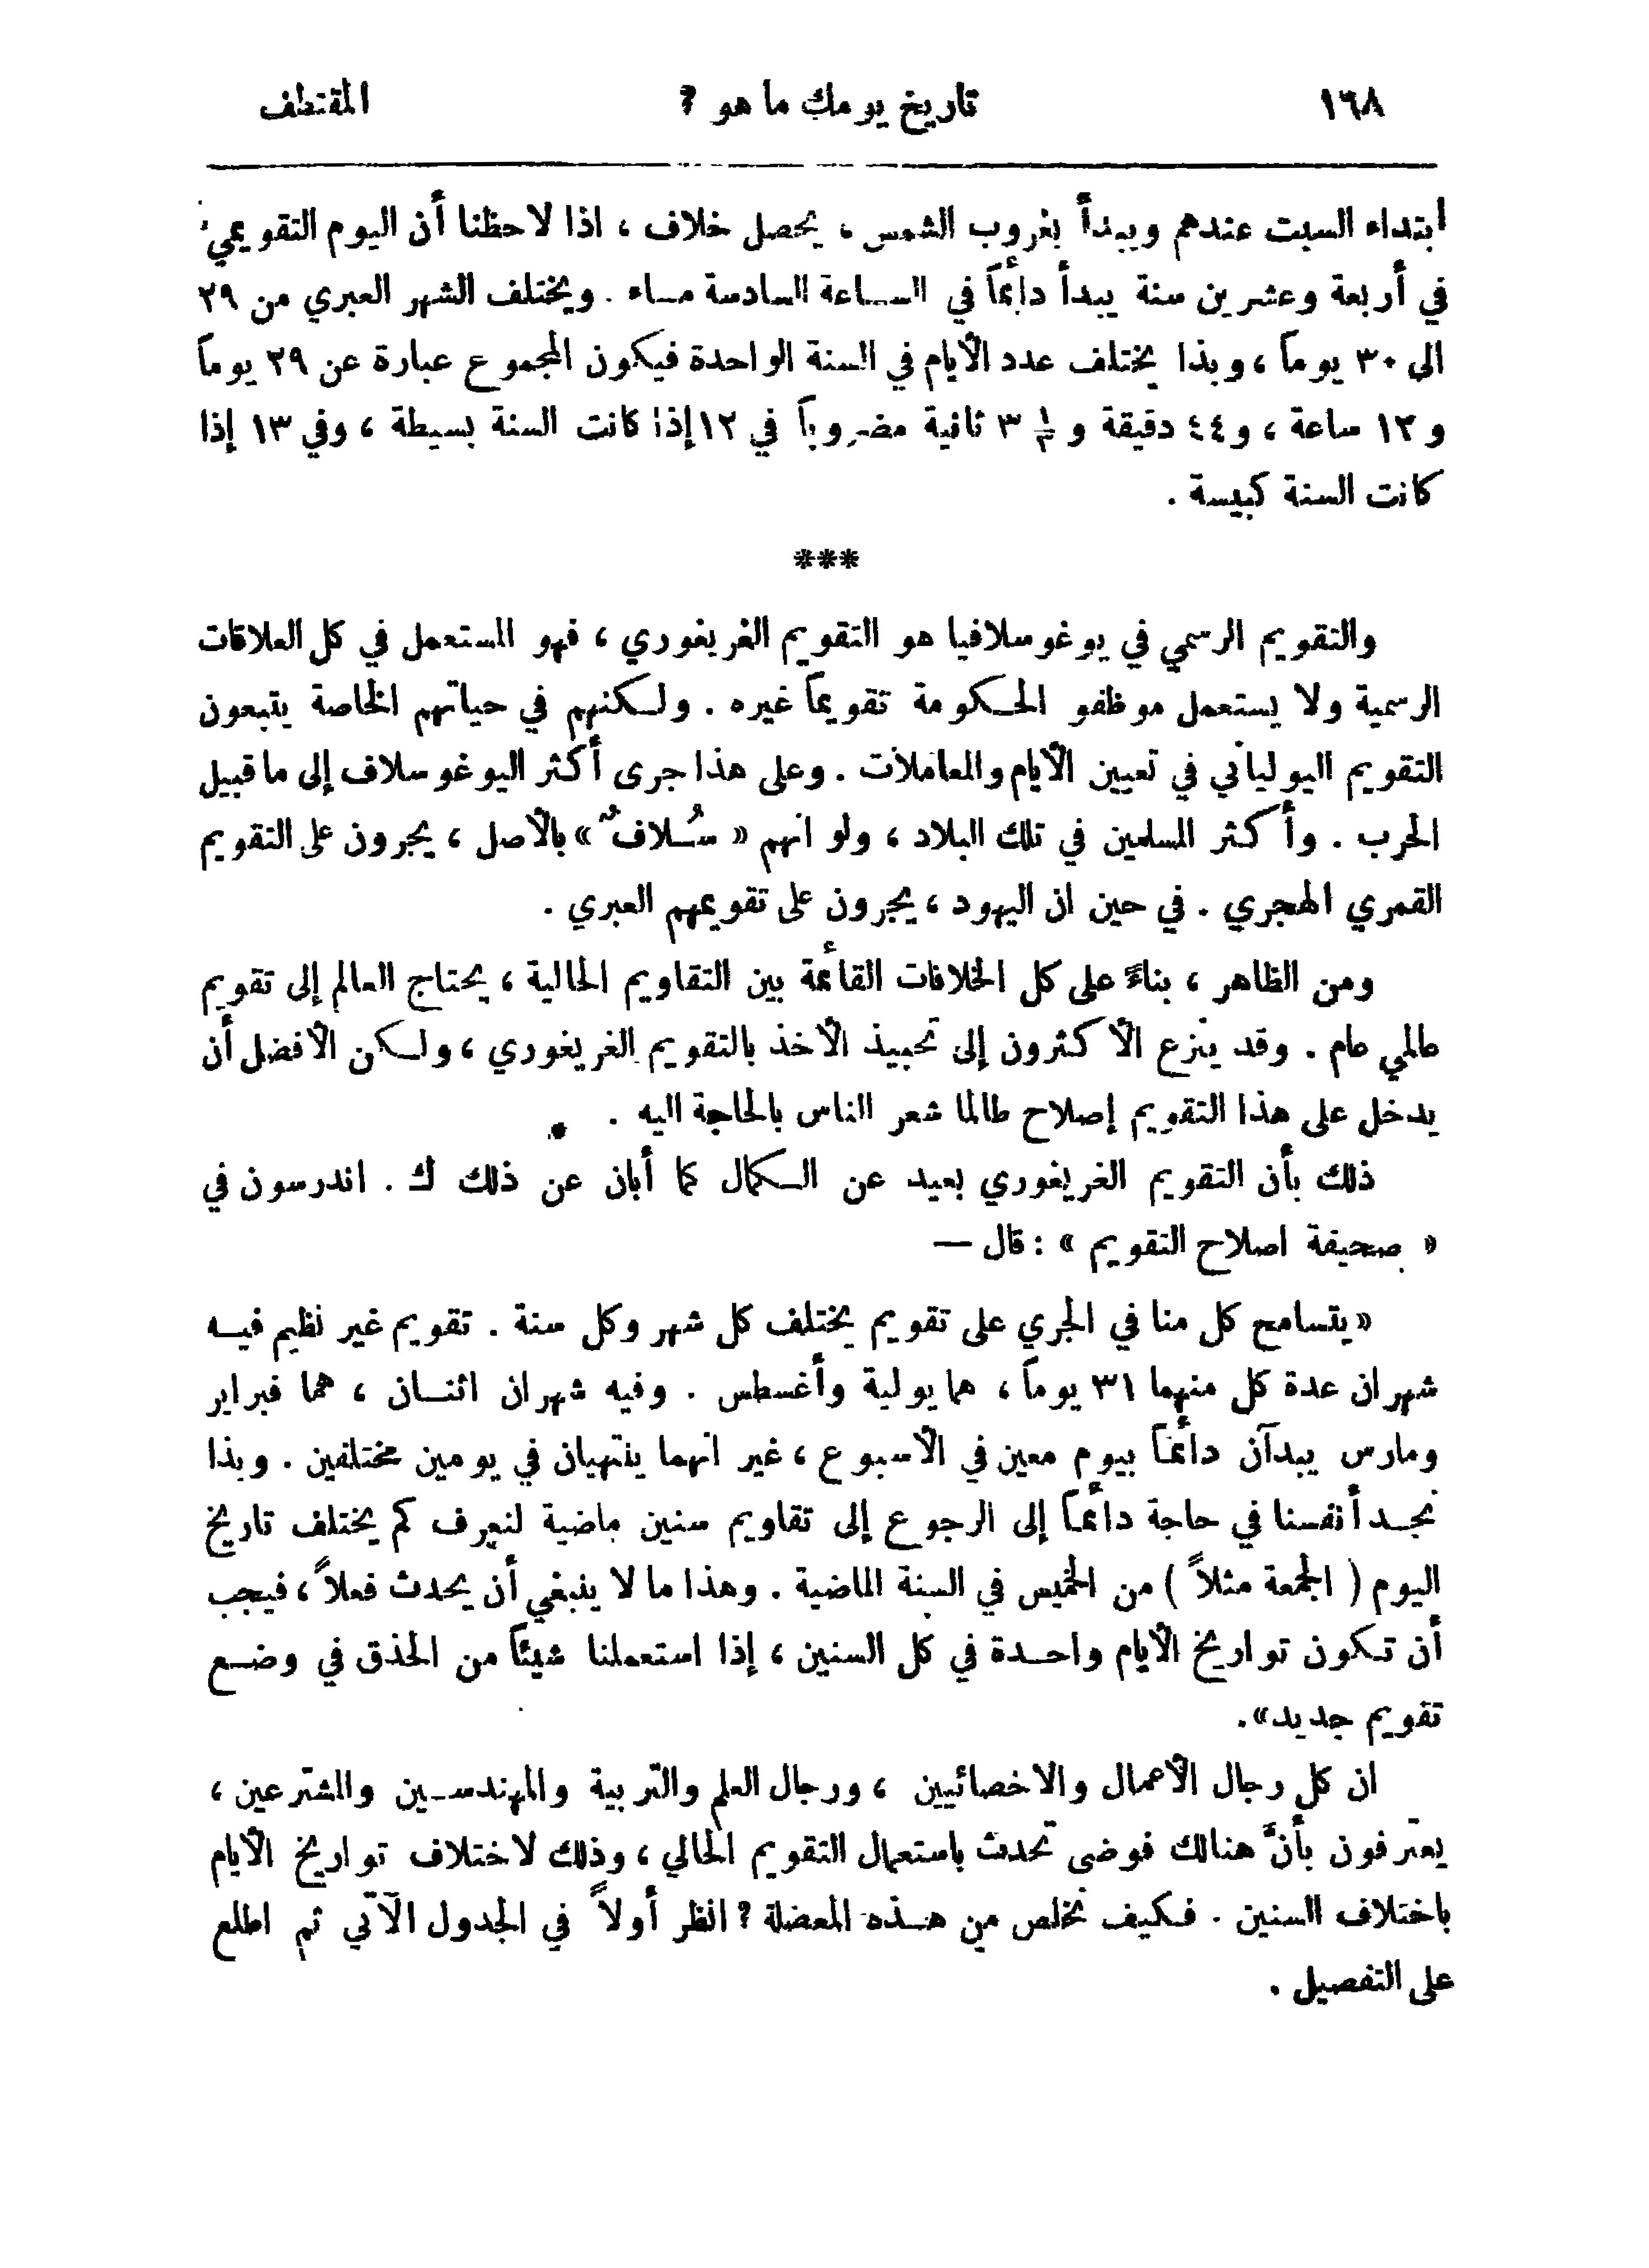 ١٦٨ تاريخ يومك ما هو ? المقتطف
ابتداء السبت عندهم ويبدأ بغروب الشمس ، يحصل خلاف ، اذا لاحظنا أن اليوم التقويمي
في أربعة وعشرين سنة يبدأ دائماً في الساعة السادسة مساء . ويختلف الشهر العبري من ٢٩
الى ٣٠ يوماً ، وبذا يختلف عدد الأيام في السنة الواحدة فيكون المجموع عبارة عن ٢٩ يوماً
و ١٢ ساعة ، و٤٤ دقيقة و ١/٣ ٣ ثانية مضروباً في ١٢ إذا كانت السنة بسيطة ، وفي ١٣ إذا
كانت السنة كبيسة .
***
والتقويم الرسمي في يوغوسلافيا هو التقويم الغريغوري ، فهو المستعمل في كل العلاقات
الرسمية ولا يستعمل موظفو الحكومة تقويماً غيره . ولكنهم في حياتهم الخاصة يتبعون
التقويم اليولياني في تعيين الأيام والمعاملات . وعلى هذا جرى أكثر اليوغوسلاف إلى ما قبيل
الحرب . وأكثر المسلمين في تلك البلاد ، ولو انهم « سُلافٌ » بالأصل ، يجرون على التقويم
القمري الهجري . في حين ان اليهود ، يجرون على تقويمهم العبري .
ومن الظاهر ، بناءً على كل الخلافات القائمة بين التقاويم الحالية ، يحتاج العالم إلى تقويم
عالمي عام . وقد ينزع الأكثرون إلى تحبيذ الأخذ بالتقويم الغريغوري ، ولكن الأفضل أن
يدخل على هذا التقويم إصلاح طالما شعر الناس بالحاجة اليه .
ذلك بأن التقويم الغريغوري بعيد عن الكمال كما أبان عن ذلك ك . اندرسون في
« صحيفة اصلاح التقويم » : قال —
«يتسامح كل منا في الجري على تقويم يختلف كل شهر وكل سنة . تقويم غير نظيم فيه
شهران عدة كل منهما ٣١ يوماً ، هما يولية وأغسطس . وفيه شهران اثنان ، هما فبراير
ومارس يبدآن دائماً بيوم معين في الأسبوع ، غير انهما ينتهيان في يومين مختلفين . وبذا
نجد أنفسنا في حاجة دائماً إلى الرجوع إلى تقاويم سنين ماضية لنعرف كم يختلف تاريخ
اليوم ( الجمعة مثلاً ) من الخميس في السنة الماضية . وهذا ما لا ينبغي أن يحدث فعلاً ، فيجب
أن تكون تواريخ الأيام واحدة في كل السنين ، إذا استعملنا شيئاً من الحذق في وضع
تقويم جديد».
ان كل رجال الأعمال والاخصائيين ، ورجال العلم والتربية والمهندسين والمشترعين ،
يعترفون بأنَّ هنالك فوضى تحدث باستعمال التقويم الحالي ، وذلك لاختلاف تواريخ الأيام
باختلاف السنين . فكيف نخلص من هذه المعضلة ? انظر أولاً في الجدول الآتي ثم اطلع
على التفصيل .